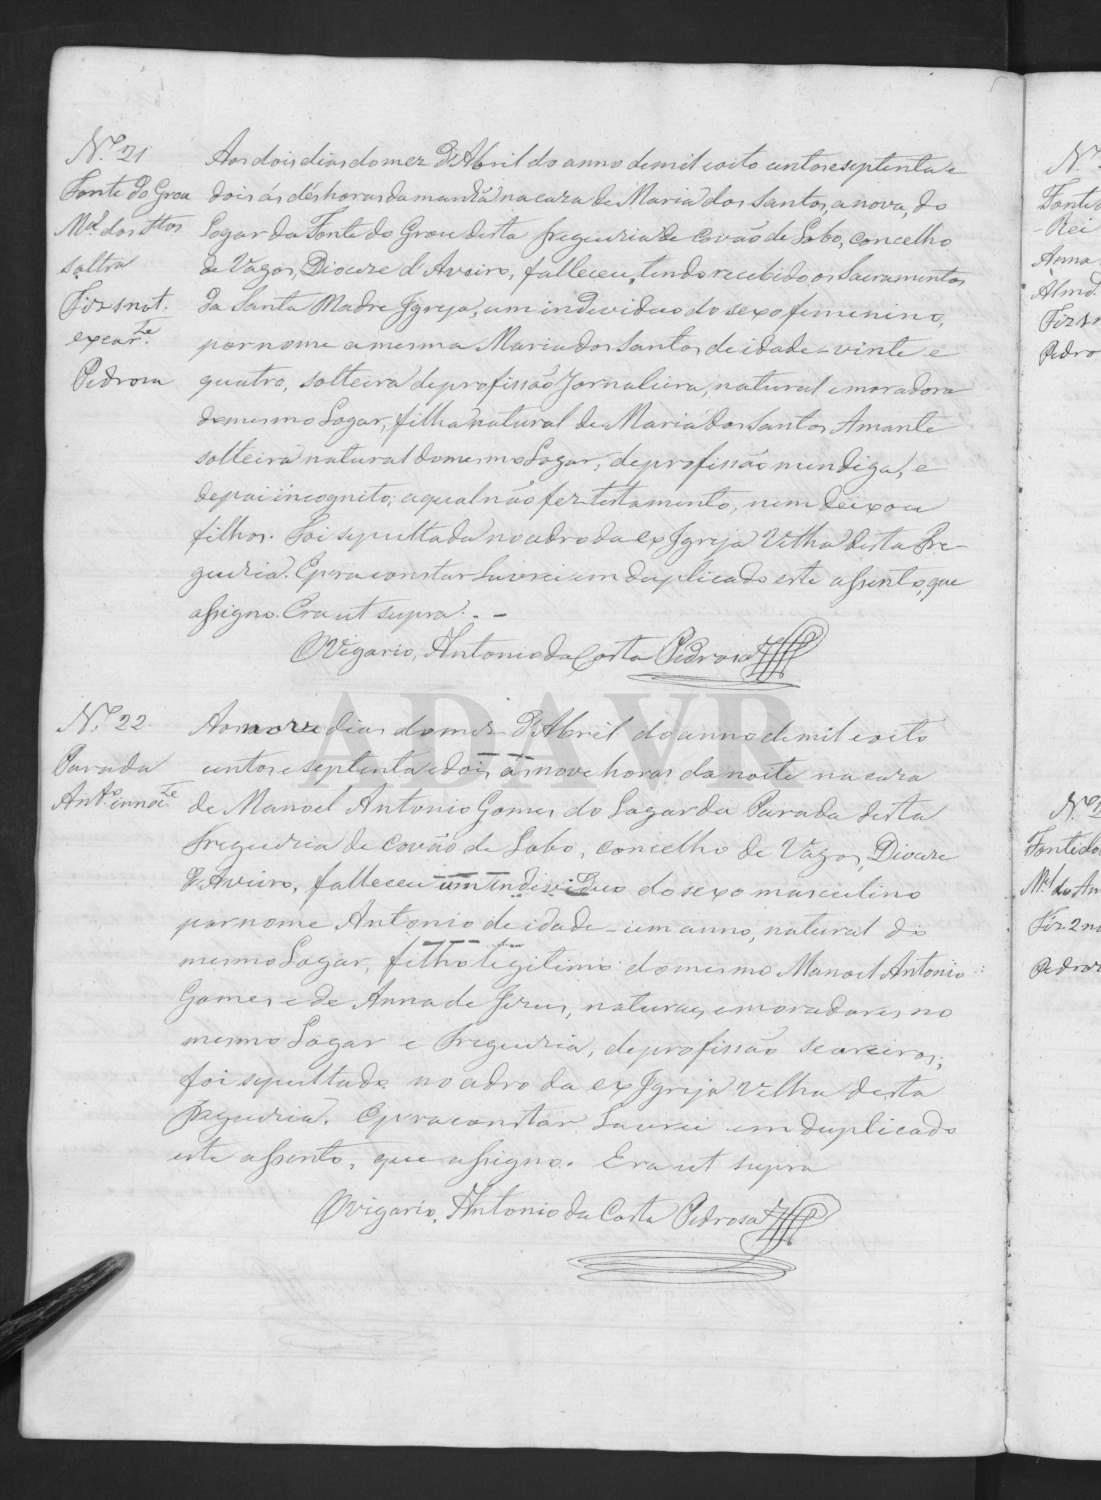 N.º 21
Fonte do Grou
M.ª dos Stos
soltra
Fiz 1 not.
e
Pedrosa
Aos dois dias do mez d'Abril do anno de mil e oito centos e septenta e
dois ás dés horas da manhã na caza de Maria dos Santos, a nova, do
Logar da Fonte do Grou desta freguezia de Covão de Lobo, concelho
de Vagos, Diocese d'Aveiro, falleceu, tendo recebido os Sacramentos
da Santa Madre Igreja, um individuo do sexo feminino,
por nome a mesma Maria dos Santos de idade - vinte e
quatro, solteira de profissão Jornaleira, natural e moradora
do mesmo Logar, filha natural de Maria dos Santos Amante
solteira natural do mesmo Logar, de profissão mendiga, e
de pai incognito; a qual não fez testamento, nem deixou
filhos. Foi sepultada no adro da ex Igreja Velha desta Fre-
guezia. E pra constar Lavrei em duplicado este assento, que
assigno. Era ut supra. -
O Vigario, Antonio da Costa Pedrosa
N.º 22
Parada
Ant.º innoc.te
Aos nove dias do mez d'Abril do anno de mil e oito
centos e septenta e dois, ás nove horas da noite na caza
de Manoel Antonio Gomes do Logar da Parada desta
Freguezia de Covão de Lobo, concelho de Vagos, Diocese
d'Aveiro, falleceu um individuo do sexo masculino
por nome Antonio de idade - um anno, natural do
mesmo Logar, filho legitimo do mesmo Manoel Antonio
Gomes e de Anna de Jesus, naturaes e moradores no
mesmo Logar e Freguezia, de profissão seareiros;
foi sepultado no adro da ex Igreja Velha desta
Freguezia. E pra constar Lavrei em duplicado
este assento, que assigno. Era ut supra
O Vigario, Antonio da Costa Pedrosa
ADAVR
N.º
Fonte d
- Rei
Anna
Almd
Fiz 1
Pedro
N.º 2
Fonte do
M.el do Am
Fiz 2 n
Pedros